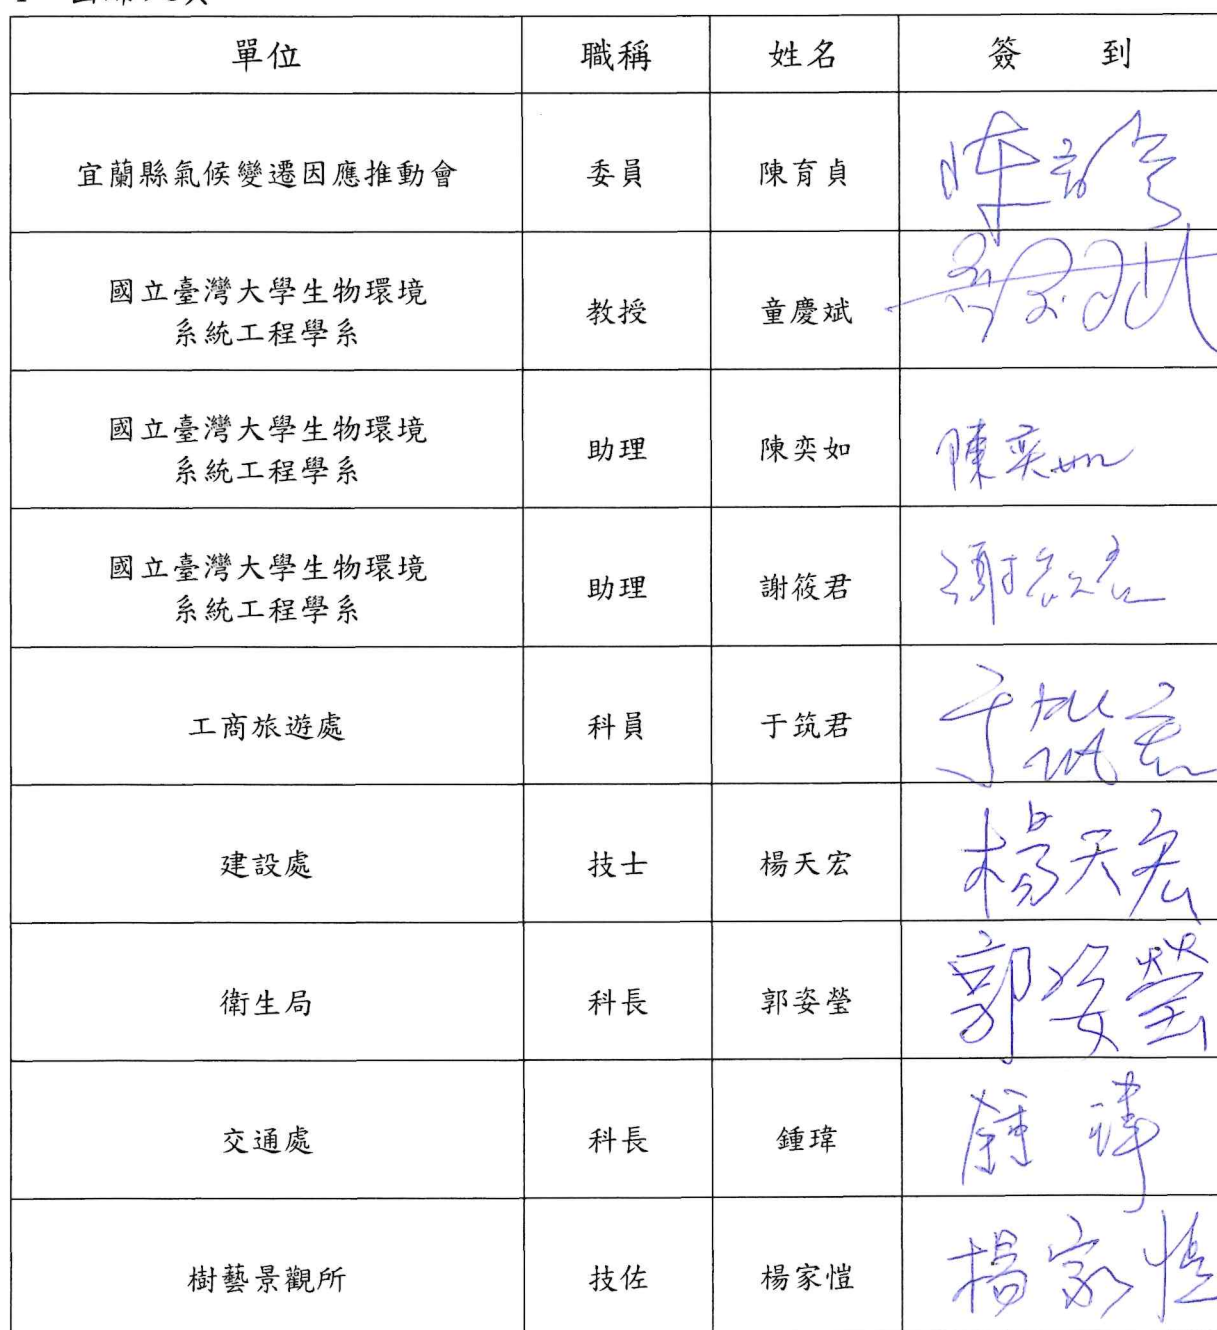 單位 職稱 姓名 簽 到
宜蘭縣氣候變遷因應推動會 委員 陳育貞
國立臺灣大學生物環境
系統工程學系 教授 童慶斌
國立臺灣大學生物環境
系統工程學系 助理 陳奕如 陳奕如
國立臺灣大學生物環境
系統工程學系 助理 謝筱君
工商旅遊處 科員 于筑君 于筑君
建設處 技士 楊天宏 楊天宏
衛生局 科長 郭姿瑩 郭姿瑩
交通處 科長 鍾瑋 鍾瑋
樹藝景觀所 技佐 楊家愷 楊家愷